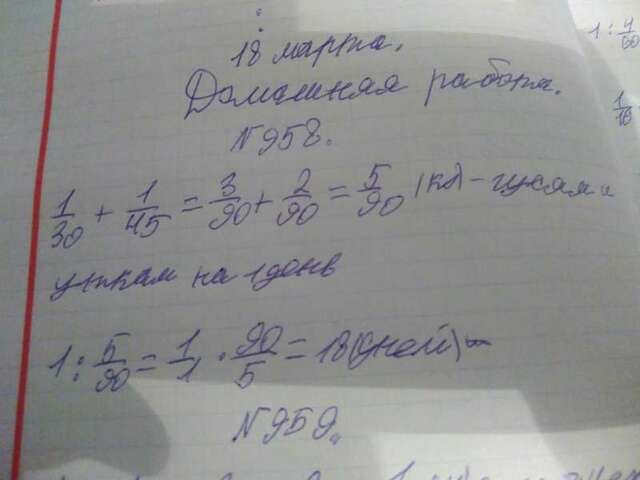 18 марта.
Домашняя работа.
N958.
1/30 + 1/45 = 3/90 + 2/90 = 5/90 (кл) - гусям и
уткам на 1 день
1 : 5/90 = 1/1 · 90/5 = 18 (дней) -
N959.
1 : 4/60
1/18